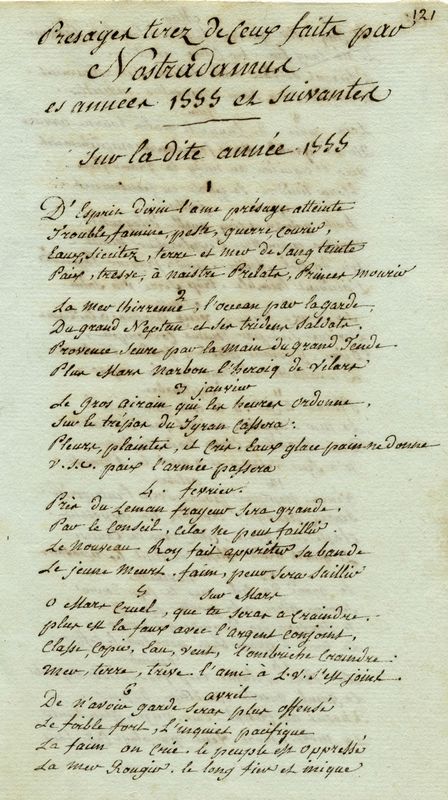 121
Presages tirez de Ceux faits par
Nostradamus
es années 1555 et suivantes
Sur la dite année 1555
1
D'Esprit divin l'ame présage atteinte
Trouble, famine, peste, guerre courir,
Eaux, Siccitez, terre et mer de sang teinte
Paix, tresve, à naistre Prelats, Princes mourir
2
La mer Thirrenne, l'occean par la garde,
Du grand Neptun et ses tridens Saldats.
Provence Seure par la main du grand Tende
Plus Mars Narbon l'heroiq de Vilars
3 janvier
Le Gros airain qui les heures ordonne,
Sur le trépas du Tyran Cassera:
Pleurs, plaintes, et Cris. Eaux glace pain ne donne
V.S.C. paix l'armée passera
4. fevrier.
Près du Leman frayeur Sera grande,
Par le Conseil, Cela ne peut faillir.
Le Nouveau Roy fait apprêter sa bande
Le jeune Meurt. faim, peur sera Saillir
5 sur Mars
O Mars Cruel, que tu seras a craindre,
plus est la faux avec l'argent Conjoint,
Classe, Copie, Eau, vent, l'ombriche Craindre
Mer, terre, trève. l'ami à L.V. s'est joint.
6 avril
De n'avoir garde seras plus offensé
Le foible fort, L'inquiet pacifique
La faim on crie. le peuple est oppressé
La mer Rougir. le long fier et inique